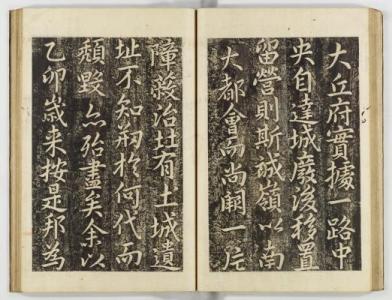 大丘府實據一路中
央自達城廢後移置
留營則斯誠嶺以南
大都會而尚闕一片
障蔽治北有土城遺
址不知刱於何代而
頹毀亦殆盡矣余以
乙卯歲来按是邦為